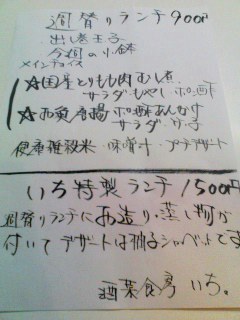 週替りランチ900円
出し巻玉子
今週の小鉢
メインチョイス
☆国産とりもも肉むし煮
サラダ・もやし・ポン酢
☆お魚唐揚ポン酢あんかけ
サラダ
雑穀米・味噌汁・プチデザート
いち特製ランチ1500円
週替りランチにお造り・蒸し物が
付いてデザートは柚子シャーベットです
酒菜食房 いち。